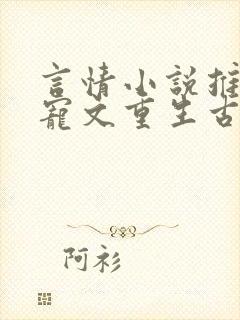 言情小說推
寵文重生古
阿衫